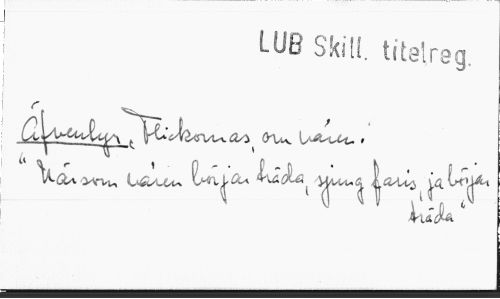 LUB Skill. titelreg.
Äfventyr, Flickornas, om våren.
"Närsom våren börjar träda, sjung faris, ja börjar
träda"